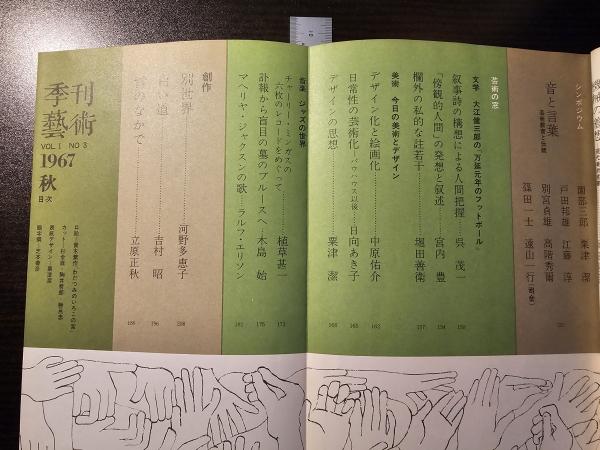 シンポジウム
音と言葉
芸術教育と伝統
園部三郎 粟津 潔
戸田邦雄 江藤 淳
別宮貞雄 高階秀爾
篠田一士 遠山一行(司会)
芸術の窓
文学 大江健三郎の「万延元年のフットボール」
叙事詩の構想による人間把握……呉 茂一 150
「傍観的人間」の発想と叙述……宮内 豊 154
欄外の私的な註若干……堀田善衛 157
美術 今日の美術とデザイン
デザイン化と絵画化……中原佑介 162
日常性の芸術化―バウハウス以後……日向あき子 165
デザインの思想……粟津 潔 168
音楽 ジャズの世界
チャーリー・ミンガスの
六枚のレコードをめぐって……植草甚一 173
訃報から盲目の墓のブルースへ……木島 始 175
マヘリヤ・ジャクスンの歌……ラルフ・エリソン 181
創作
別世界……河野多恵子 208
白い道……吉村 昭 196
立原正秋 186
季刊
藝術
VOL I NO 3
1967
秋
目次